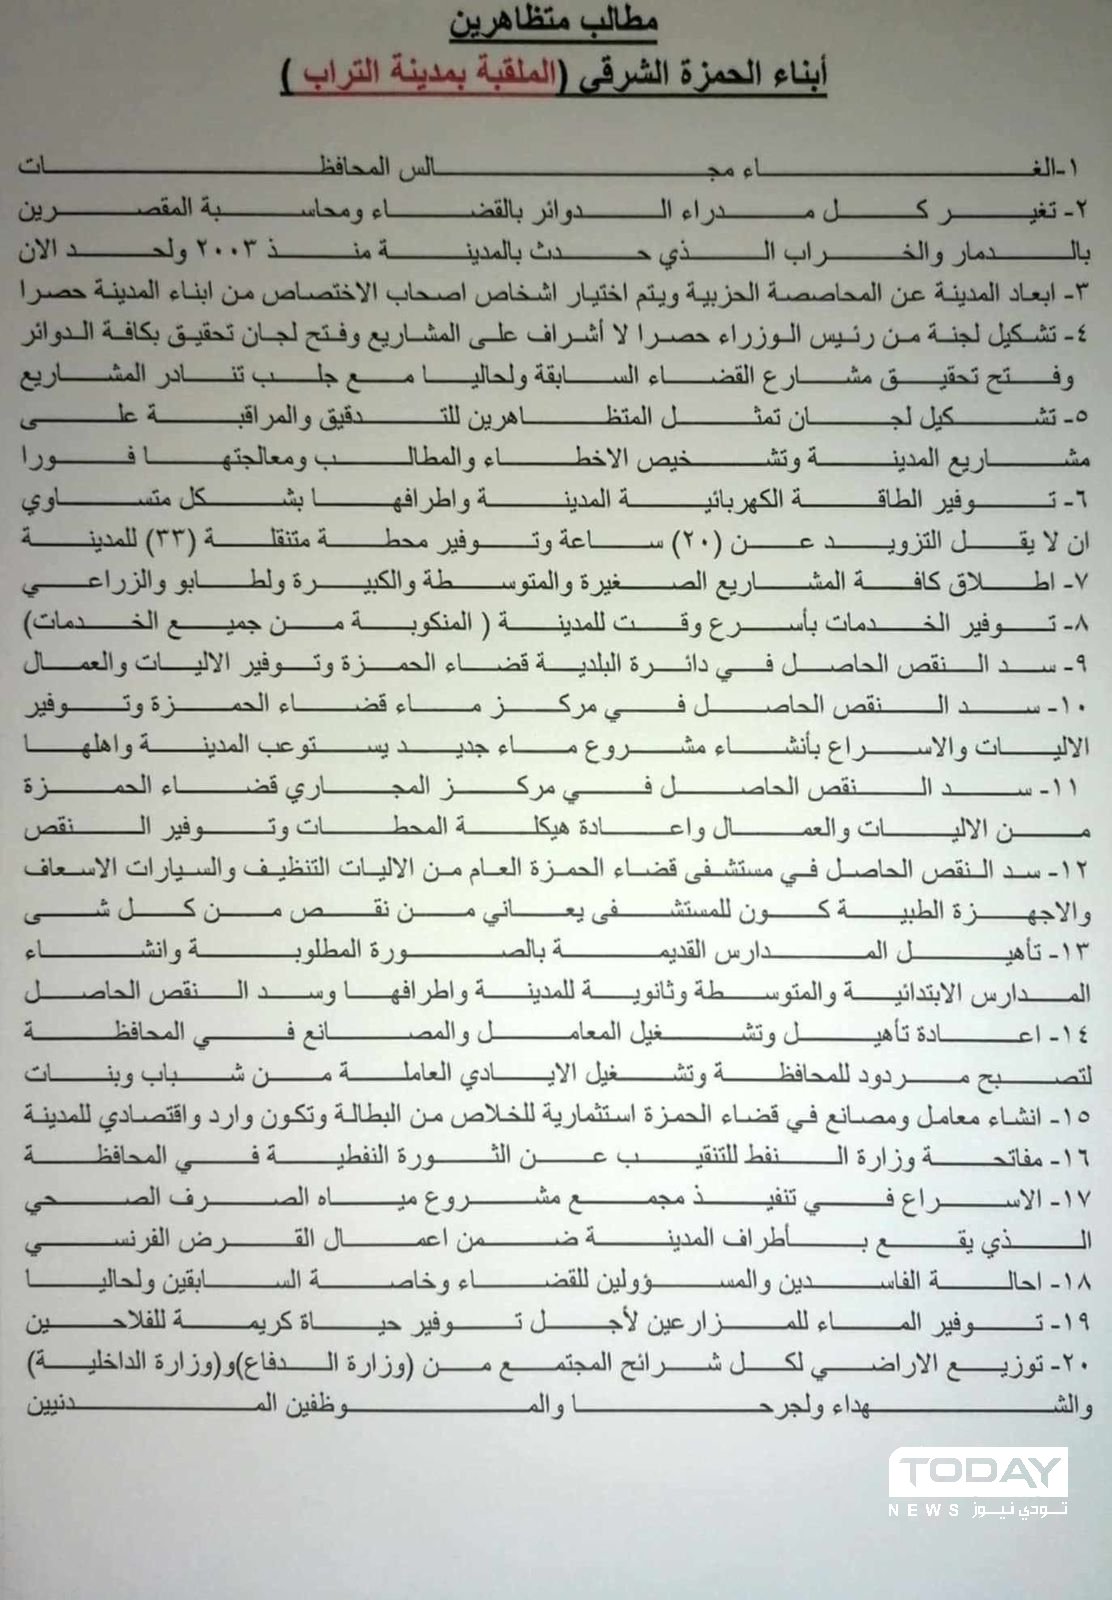 مطالب متظاهرين
أبناء الحمزة الشرقي (الملقبة بمدينة التراب )
١-الغاء مجالس المحافظات
٢- تغير كل مدراء الدوائر بالقضاء ومحاسبة المقصرين
بالدمار والخراب الذي حدث بالمدينة منذ ٢٠٠٣ ولحد الان
٣- ابعاد المدينة عن المحاصصة الحزبية ويتم اختيار اشخاص اصحاب الاختصاص من ابناء المدينة حصرا
٤- تشكيل لجنة من رئيس الوزراء حصرا لا أشراف على المشاريع وفتح لجان تحقيق بكافة الدوائر
وفتح تحقيق مشارع القضاء السابقة ولحاليا مع جلب تنادر المشاريع
٥- تشكيل لجان تمثل المتظاهرين للتدقيق والمراقبة على
مشاريع المدينة وتشخيص الاخطاء والمطالب ومعالجتها فورا
٦- توفير الطاقة الكهربائية المدينة واطرافها بشكل متساوي
ان لا يقل التزويد عن (٢٠) ساعة وتوفير محطة متنقلة (٣٣) للمدينة
٧- اطلاق كافة المشاريع الصغيرة والمتوسطة والكبيرة ولطابو والزراعي
٨- توفير الخدمات بأسرع وقت للمدينة ( المنكوبة من جميع الخدمات)
٩- سد النقص الحاصل في دائرة البلدية قضاء الحمزة وتوفير الاليات والعمال
١٠- سد النقص الحاصل في مركز ماء قضاء الحمزة وتوفير
الاليات والاسراع بأنشاء مشروع ماء جديد يستوعب المدينة واهلها
١١- سد النقص الحاصل في مركز المجاري قضاء الحمزة
من الاليات والعمال واعادة هيكلة المحطات وتوفير النقص
١٢- سد النقص الحاصل في مستشفى قضاء الحمزة العام من الاليات التنظيف والسيارات الاسعاف
والاجهزة الطبية كون للمستشفى يعاني من نقص من كل شى
١٣- تأهيل المدارس القديمة بالصورة المطلوبة وانشاء
المدارس الابتدائية والمتوسطة وثانوية للمدينة واطرافها وسد النقص الحاصل
١٤- اعادة تأهيل وتشغيل المعامل والمصانع في المحافظة
لتصبح مردود للمحافظة وتشغيل الايادي العاملة من شباب وبنات
١٥- انشاء معامل ومصانع في قضاء الحمزة استثمارية للخلاص من البطالة وتكون وارد واقتصادي للمدينة
١٦- مفاتحة وزارة النفط للتنقيب عن الثورة النفطية في المحافظة
١٧- الاسراع في تنفيذ مجمع مشروع مياه الصرف الصحي
الذي يقع بأطراف المدينة ضمن اعمال القرض الفرنسي
١٨- احالة الفاسدين والمسؤولين للقضاء وخاصة السابقين ولحاليا
١٩- توفير الماء للمزارعين لأجل توفير حياة كريمة للفلاحين
٢٠- توزيع الاراضي لكل شرائح المجتمع من (وزارة الدفاع)و(وزارة الداخلية)
والشهداء ولجرحا والموظفين المدنيين
TODAY
NEWS تودي نيوز